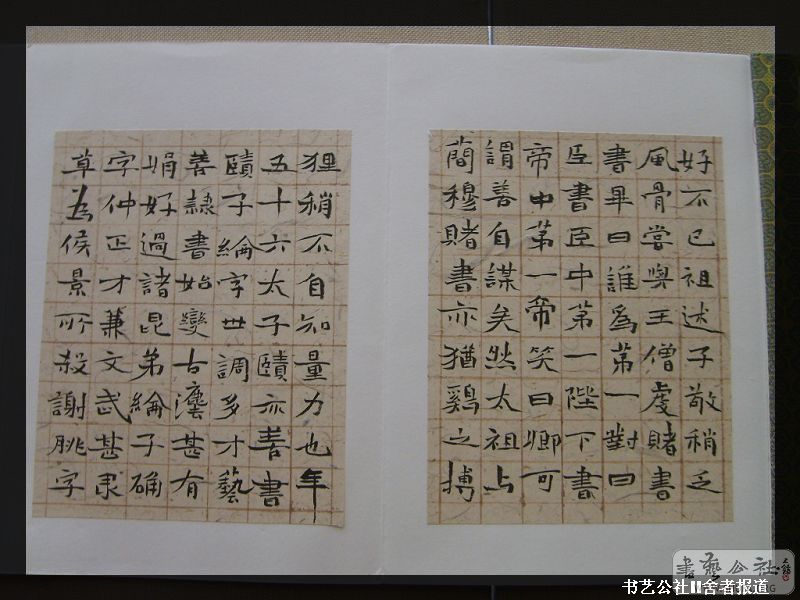 好不已祖述子敬稍乏
風骨嘗與王僧虔賭書
書畢曰誰為第一對曰
臣書臣中第一陛下書
帝中第一帝笑曰卿可
謂善自謀矣然太祖与
簡穆賭書亦猶鷄之搏
狸稍不自知量力也年
五十六太子賾亦善書
賾子綸字世調多才藝
善隸書始變古灋甚有
娟好過諸昆弟綸子确
字仲正才兼文武甚
草為侯景所殺謝朓字
書藝公社
书艺公社II舍者报道